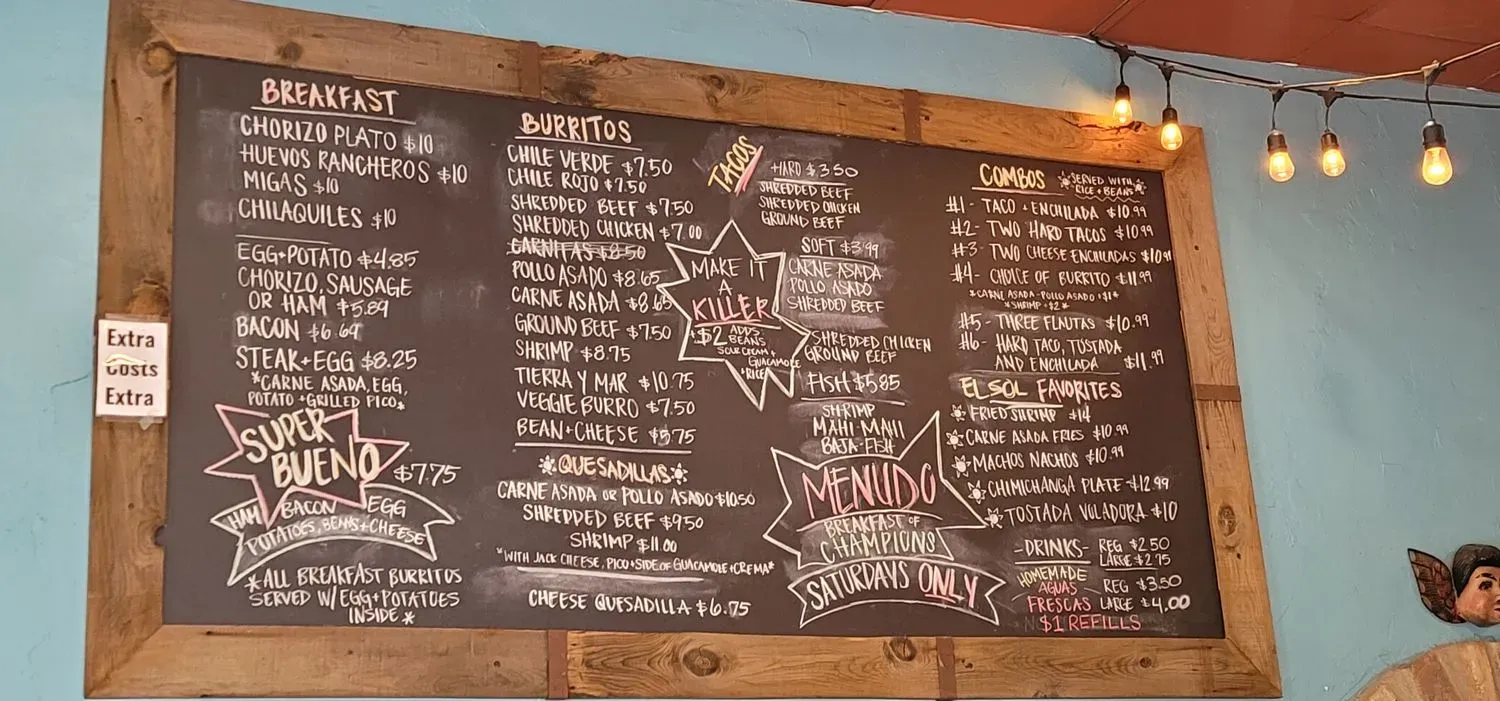 Extra
Costs
Extra
BREAKFAST
CHORIZO PLATO $10
HUEVOS RANCHEROS $10
MIGAS $10
CHILAQUILES $10
EGG+POTATO $4.85
CHORIZO, SAUSAGE
OR HAM $5.89
BACON $6.69
STEAK+EGG $8.25
*CARNE ASADA, EGG,
POTATO + GRILLED PICO*
SUPER
BUENO $7.75
HAM BACON EGG
POTATOES, BEANS+CHEESE
*ALL BREAKFAST BURRITOS
SERVED W/EGG+POTATOES
INSIDE*
BURRITOS
CHILE VERDE $7.50
CHILE ROJO $7.50
SHREDDED BEEF $7.50
SHREDDED CHICKEN $7.00
CARNITAS $8.50
POLLO ASADO $8.65
CARNE ASADA $8.65
GROUND BEEF $7.50
SHRIMP $8.75
TIERRA Y MAR $10.75
VEGGIE BURRO $7.50
BEAN+CHEESE $5.75
QUESADILLAS
CARNE ASADA OR POLLO ASADO $10.50
SHREDDED BEEF $9.50
SHRIMP $11.00
*WITH JACK CHEESE, PICO+SIDE OF GUACAMOLE+CREMA*
CHEESE QUESADILLA $6.75
TACOS
HARD $3.50
SHREDDED BEEF
SHREDDED CHICKEN
GROUND BEEF
SOFT $3.99
CARNE ASADA
POLLO ASADO
SHREDDED BEEF
SHREDDED CHICKEN
GROUND BEEF
FISH $5.85
SHRIMP
MAHI-MAHI
BAJA-FISH
MAKE IT
A
KILLER
+$2 ADDS
BEANS
SOUR CREAM +
GUACAMOLE
+RICE
MENUDO
BREAKFAST OF
CHAMPIONS
SATURDAYS ONLY
COMBOS *SERVED WITH
RICE + BEANS*
#1- TACO + ENCHILADA $10.99
#2- TWO HARD TACOS $10.99
#3- TWO CHEESE ENCHILADAS $10.99
#4- CHOICE OF BURRITO $11.99
*CARNE ASADA-POLLO ASADO +$1*
*SHRIMP +$2*
#5- THREE FLAUTAS $10.99
#6- HARD TACO, TOSTADA
AND ENCHILADA $11.99
EL SOL FAVORITES
FRIED SHRIMP $14
CARNE ASADA FRIES $10.99
MACHOS NACHOS $10.99
CHIMICHANGA PLATE $12.99
TOSTADA VOLADORA $10
-DRINKS- REG $2.50
LARGE $2.75
HOMEMADE
AGUAS REG $3.50
FRESCAS LARGE $4.00
$1 REFILLS